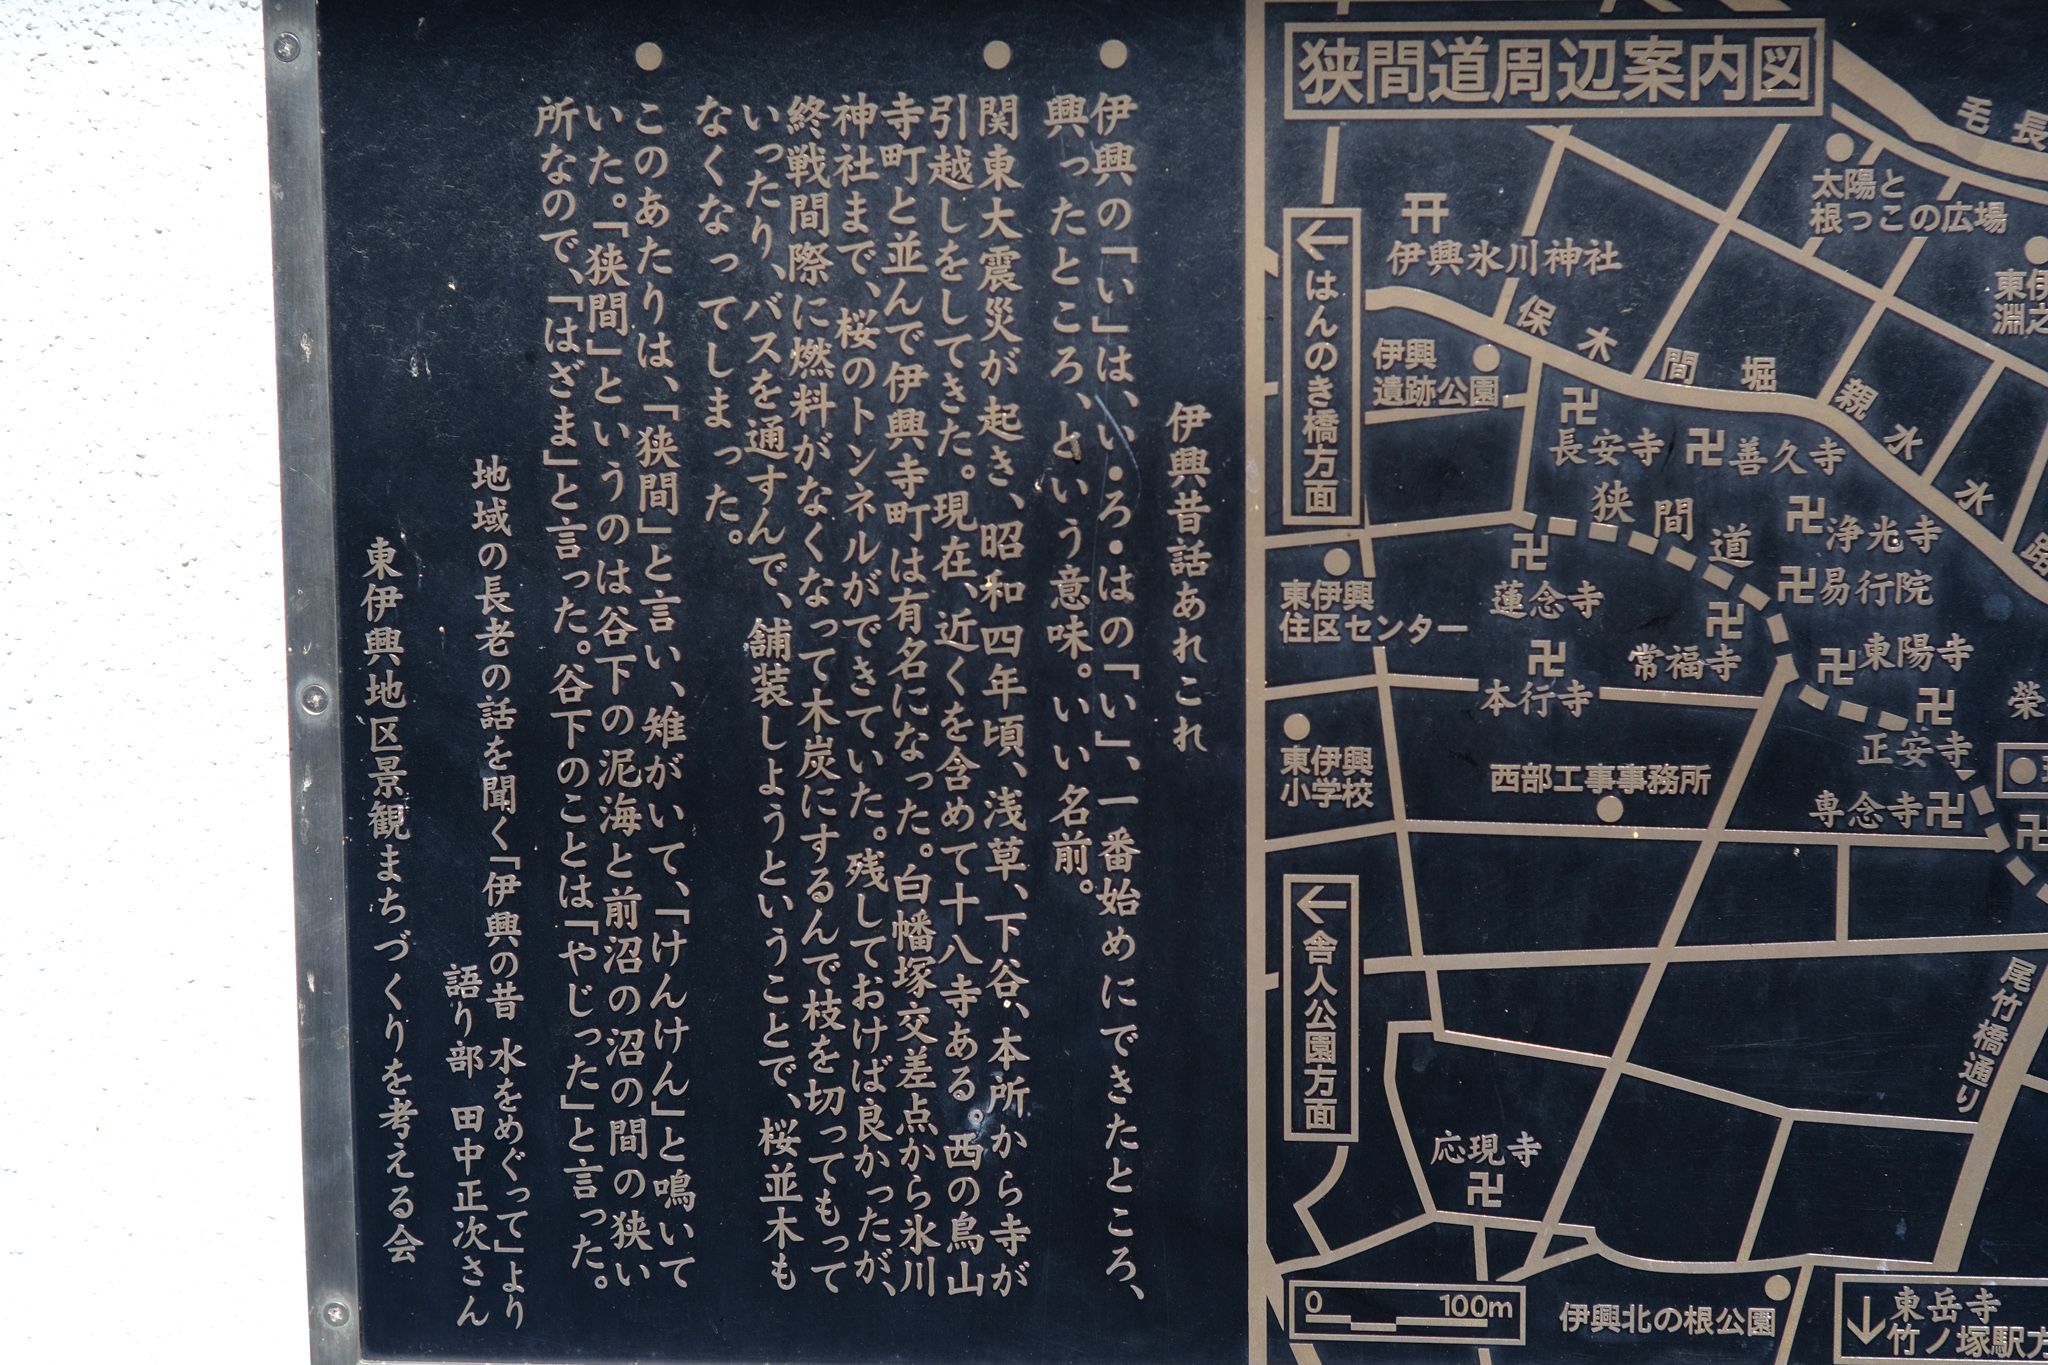 狭間道周辺案内図
毛長
太陽と
根っこの広場
伊興氷川神社
はんのき橋方面
保木間堀親水水路
伊興
遺跡公園
長安寺
善久寺
狭間道
浄光寺
易行院
蓮念寺
常福寺
東陽寺
本行寺
正安寺
専念寺
東伊興
住区センター
東伊興
小学校
西部工事事務所
舎人公園方面
尾竹橋通り
応現寺
0 100m
伊興北の根公園
東岳寺
竹ノ塚駅方
伊興昔話あれこれ
●伊興の「い」は、い・ろ・はの「い」、一番始めにできたところ、
興ったところ、という意味。いい名前。
●関東大震災が起き、昭和四年頃、浅草、下谷、本所から寺が
引越しをしてきた。現在、近くを含めて十八寺ある。西の鳥山
寺町と並んで伊興寺町は有名になった。白幡塚交差点から氷川
神社まで、桜のトンネルができていた。残しておけば良かったが、
終戦間際に燃料がなくなって木炭にするんで枝を切ってもって
いったり、バスを通すんで、舗装しようということで、桜並木も
なくなってしまった。
●このあたりは、「狭間」と言い、雉がいて、「けんけん」と鳴いて
いた。「狭間」というのは谷下の泥海と前沼の沼の間の狭い
所なので、「はざま」と言った。谷下のことは「やじった」と言った。
地域の長老の話を聞く「伊興の昔 水をめぐって」より
語り部 田中正次さん
東伊興地区景観まちづくりを考える会